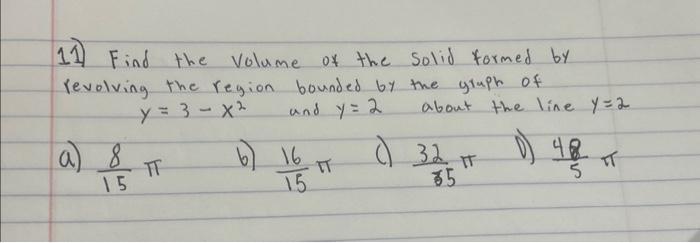 11) Find the Volume of the Solid formed by
revolving the region bounded by the graph of
y = 3 - x² and y = 2 about the line y = 2
a) 8/15 π b) 16/15 π c) 32/35 π D) 48/5 π